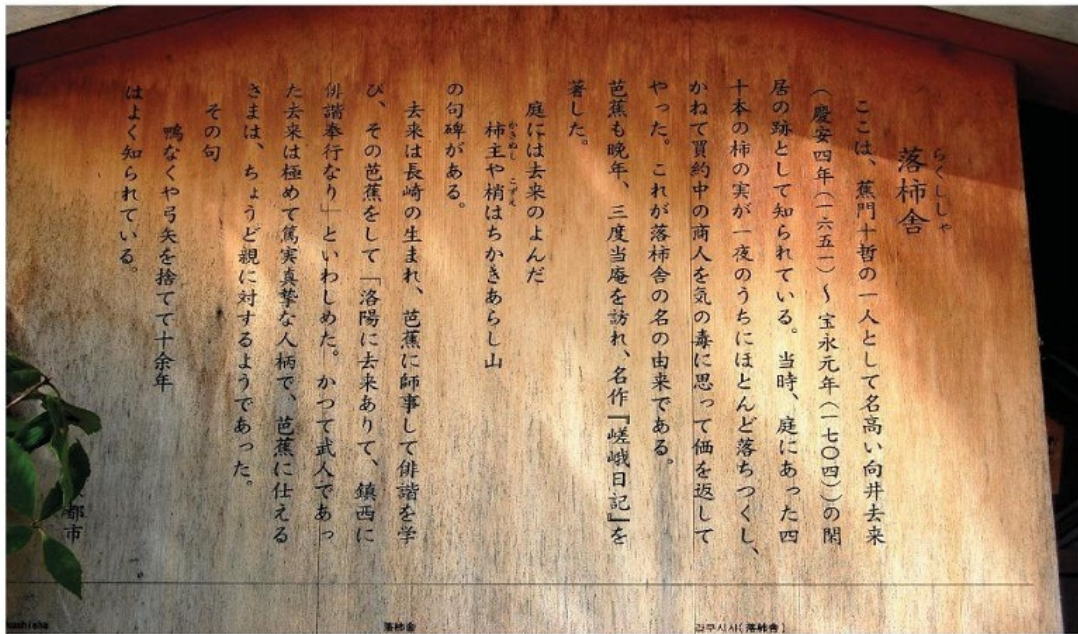 らくししゃ
落柿舎
ここは、蕉門十哲の一人として名高い向井去来
(慶安四年(一六五一)~宝永元年(一七〇四))の閑
居の跡として知られている。当時、庭にあった四
十本の柿の実が一夜のうちにほとんど落ちつくし、
かねて買約中の商人を気の毒に思って価を返して
やった。これが落柿舎の名の由来である。
芭蕉も晩年、三度当庵を訪れ、名作『嵯峨日記』を
著した。
庭には去来のよんだ
かきぬし こずえ
柿主や梢はちかきあらし山
の句碑がある。
去来は長崎の生まれ、芭蕉に師事して俳諧を学
び、その芭蕉をして「洛陽に去来ありて、鎮西に
俳諧奉行なり」といわしめた。かつて武人であっ
た去来は極めて篤実真摯な人柄で、芭蕉に仕える
さまは、ちょうど親に対するようであった。
その句
鴨なくや弓矢を捨てて十余年
はよく知られている。
都市
落柿舎
(落柿舎)